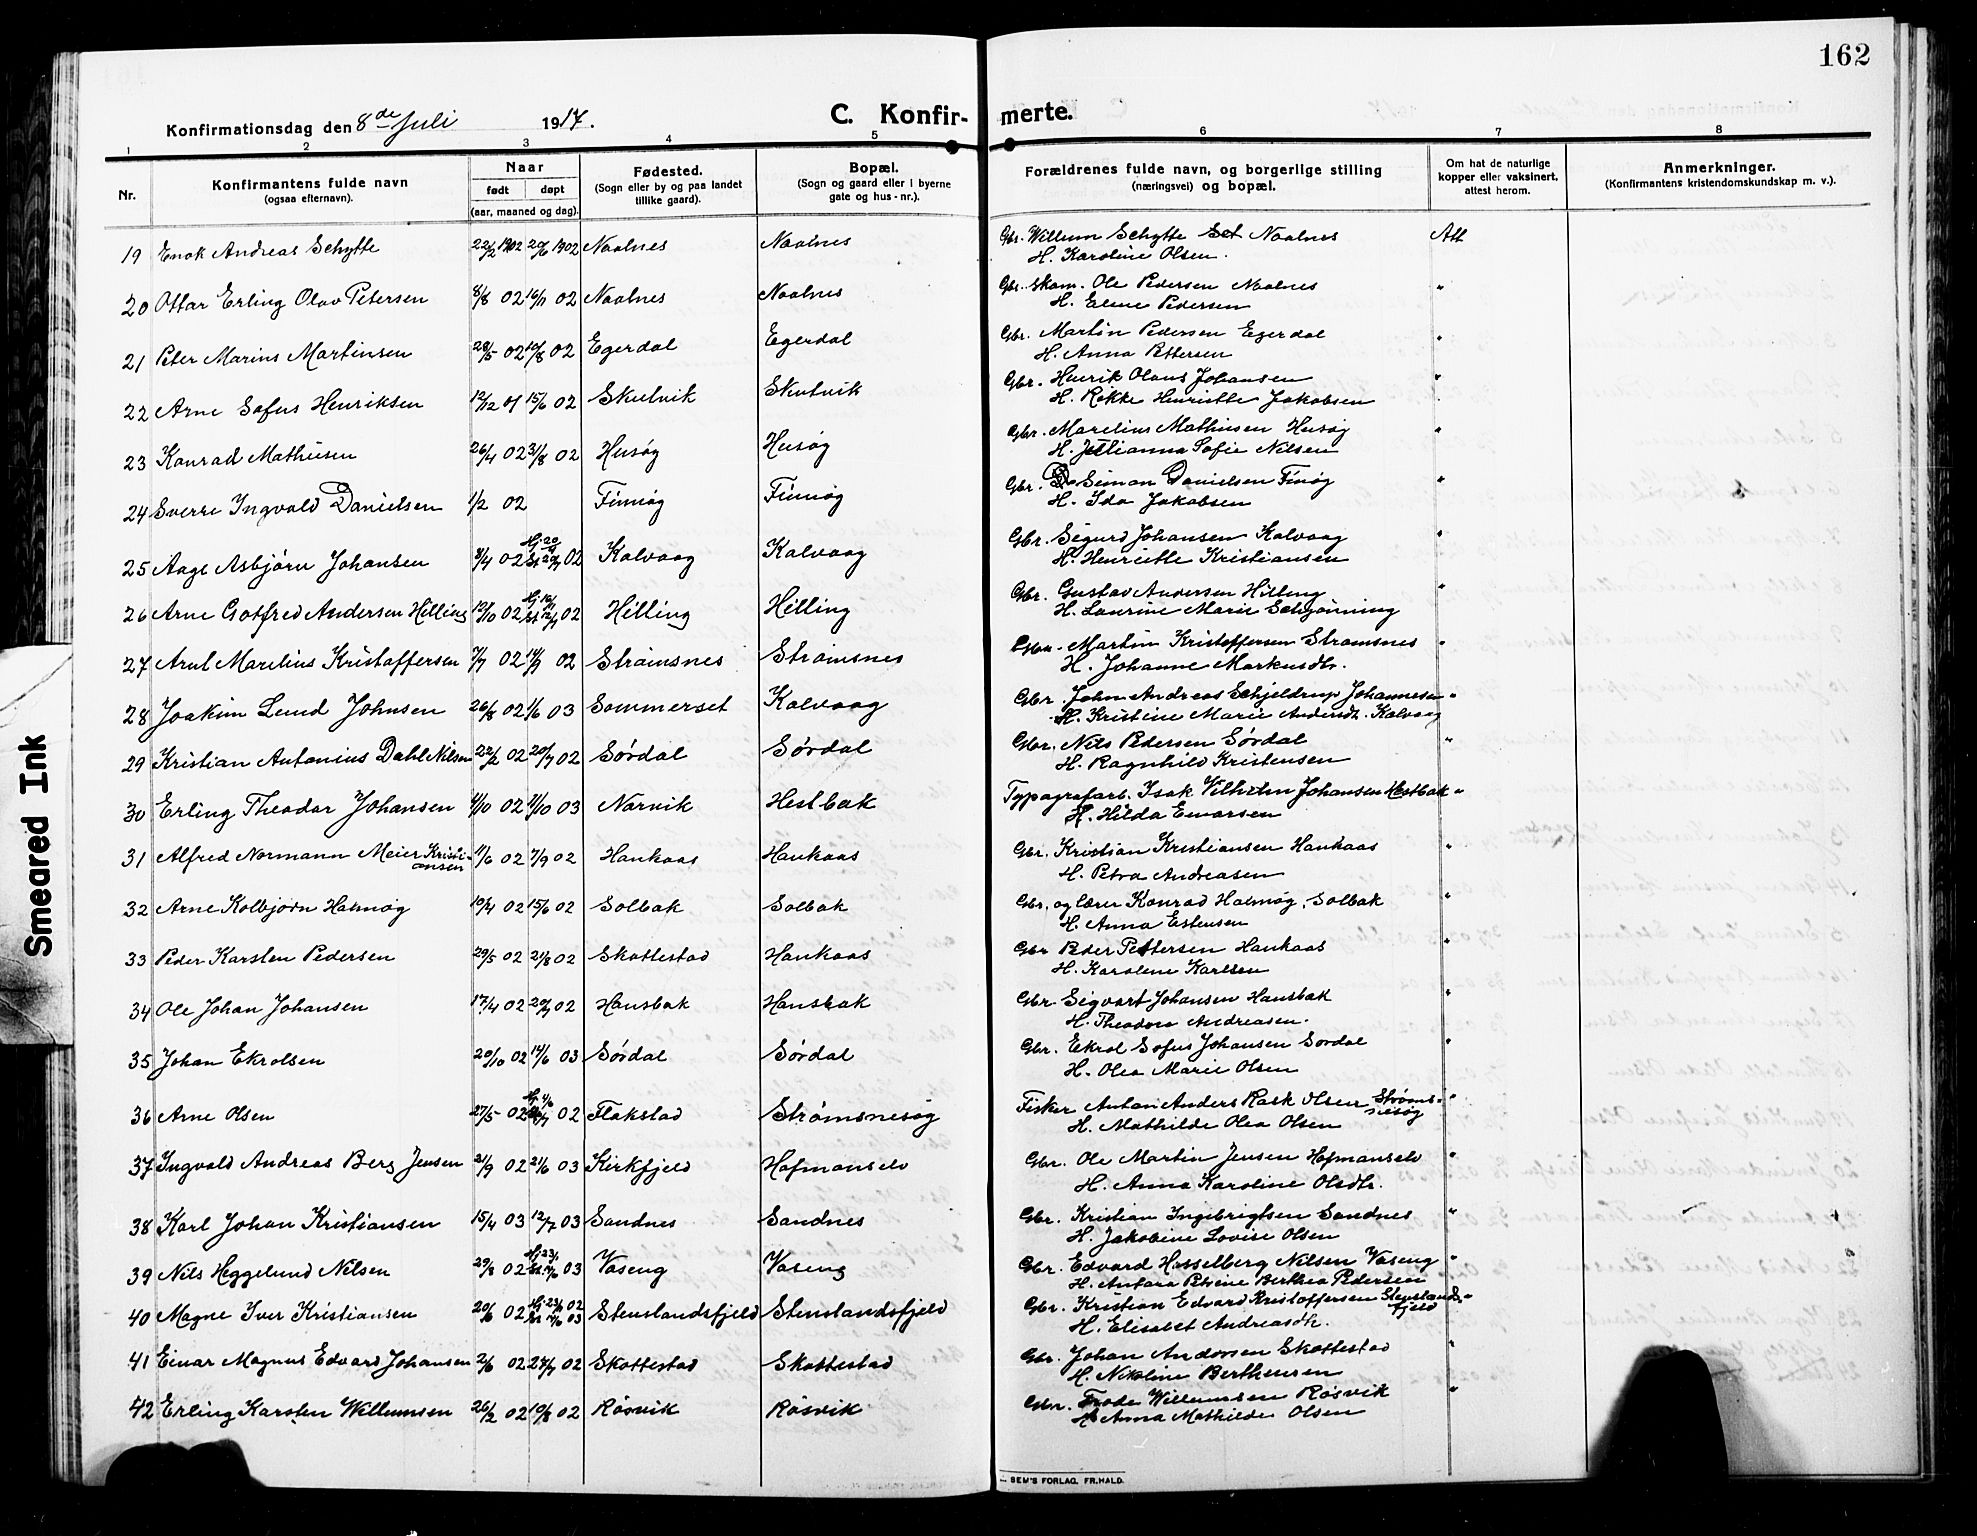 162
Konfirmationsdag den 8de Juli 1917. C. Konfirmerte.
1 2 3 4 5 6 7 8
Nr. Konfirmantens fulde navn (ogsaa efternavn). Naar født døpt (aar, maaned og dag). Fødested. (Sogn eller by og paa landet tillike gaard). Bopæl. (Sogn og gaard eller i byerne gate og hus-nr.). Forældrenes fulde navn, og borgerlige stilling (næringsvei) og bopæl. Om hat de naturlige kopper eller vaksinert, attest herom. Anmerkninger. (Konfirmantens kristendomskundskap m. v.).
19 Enok Andreas Schytte 22/2 1902 20/6 1902 Naalnes Naalnes Gbr. Willum Schytte Naalnes Att
H. Karoline Olsen.
20 Ottar Erling Olav Petersen 8/8 02 16/11 02 Naalnes Naalnes Gbr. Skom. Ole Pedersen Naalnes "
H. Eline Pedersen
21 Peter Marius Martinsen 28/5 02 10/8 02 Egerdal Egerdal Gbr. Martin Pedersen Egerdal "
H. Anna Pettersen
22 Arne Sofus Henriksen 12/12 01 15/6 02 Skutvik Skutvik Gbr. Henrik Olaus Johansen "
H. Rikke Henriette Jakobsen
23 Konrad Mathisen 26/4 02 31/8 02 Husøy Husøy Gbr. Marelius Mathisen Husøy "
H. Julianna Sofie Nilsen
24 Sverre Ingvald Danielsen 1/2 02 Finnøy Finnøy Gbr. Simon Danielsen Finøy "
H. Ida Jakobsen
25 Aage Asbjørn Johansen 8/4 02 Hj. 20/4 St 20/7 02 Kalvaag Kalvaag Gbr. Sigurd Johansen Kalvaag "
H. Henriette Kristiansen
26 Arne Gotfred Andersen Hilling 12/10 02 02 Hilling Hilling Gbr. Gustav Andersen Hilling "
H. Laurine Marie Schjønning
27 Arnt Marelius Kristoffersen 7/7 02 02 Strømsnes Strømsnes Gbr. Martin Kristoffersen Strømsnes "
H. Johanne Markusdtr.
28 Joakim Lund Johnsen 26/8 02 1/6 03 Sommerset Kalvaag Gbr. John Andreas Schjeldrup Johannesen "
H. Kristine Marie Andersdt. Kalvaag
29 Kristian Antonius Dahl Nilsen 22/2 02 20/7 02 Sørdal Sørdal Gbr. Nils Pedersen Sørdal "
H. Ragnhild Kristensen
30 Erling Theodor Johansen 02 03 Narvik Hestbak Typografarb. Isak Vilhelm Johansen Hestbak "
H. Hilda Einarsen
31 Alfred Normann Meier Kristiansen 11/6 02 7/9 02 Hankaas Hankaas Gbr. Kristian Kristiansen Hankaas "
H. Petra Andreasen
32 Arne Kolbjørn Halmøy 10/4 02 15/6 02 Solbak Solbak Gbr. og lærer Konrad Halmøy, Solbak "
H. Anna Estensen
33 Peder Karsten Pedersen 29/5 02 21/8 02 Skottestad Hankaas Gbr Peder Pettersen Hankaas "
H. Karolene Karlsen
34 Ole Johan Johansen 17/4 02 20/7 02 Hansbak Hansbak Gbr. Sigvart Johansen Hansbak "
H. Theodora Andreasen.
35 Johan Ekrolsen 20/10 02 14/6 03 Sørdal Sørdal Gbr. Ekrol Sofus Johansen Sørdal "
H. Olea Marie Olsen
36 Arne Olsen 27/5 02 02 Flakstad Strømsnesøy Fisker Anton Anders Rask Olsen Strømsnesøy "
H. Mathilde Olea Olsen
37 Ingvald Andreas Berg Jensen 21/9 02 21/6 03 Kirkfjeld Hofmanselv Gbr. Ole Martin Jensen Hofmanselv "
H. Anna Karoline Olsdtr.
38 Karl Johan Kristiansen 15/4 03 12/7 03 Sandnes Sandnes Gbr. Kristian Ingebrigtsen Sandnes "
H. Jakobine Lovise Olsen
39 Nils Heggelund Nilsen 29/8 02 03 Vaseng Vaseng Gbr. Edvard Hesselberg Nilsen Vaseng "
H. Antara Petrine Berthea Pedersen
40 Magne Iver Kristiansen 20/6 02 02 03 Stenslandsfjeld Stenslandsfjeld Gbr. Kristian Edvard Kristoffersen Stenslandsfjeld "
H. Elisabet Andreasdtr.
41 Einar Magnus Edvard Johansen 2/6 02 27/7 02 Skottestad Skottestad Gbr. Johan Andersen Skottestad "
H. Nikoline Berthensen
42 Erling Karsten Willumsen 26/2 02 10/8 02 Røsvik Røsvik Gbr. Frode Willumsen Røsvik "
H. Anna Mathilde Olsen
SEM'S FORLAG. FR.HALD.
Smeared Ink